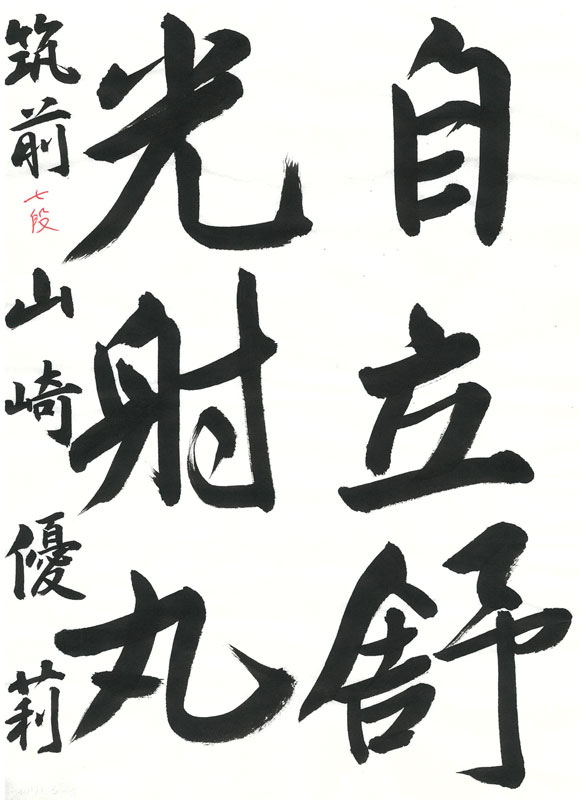 自立舒
光射丸
筑前 七段 山崎優莉